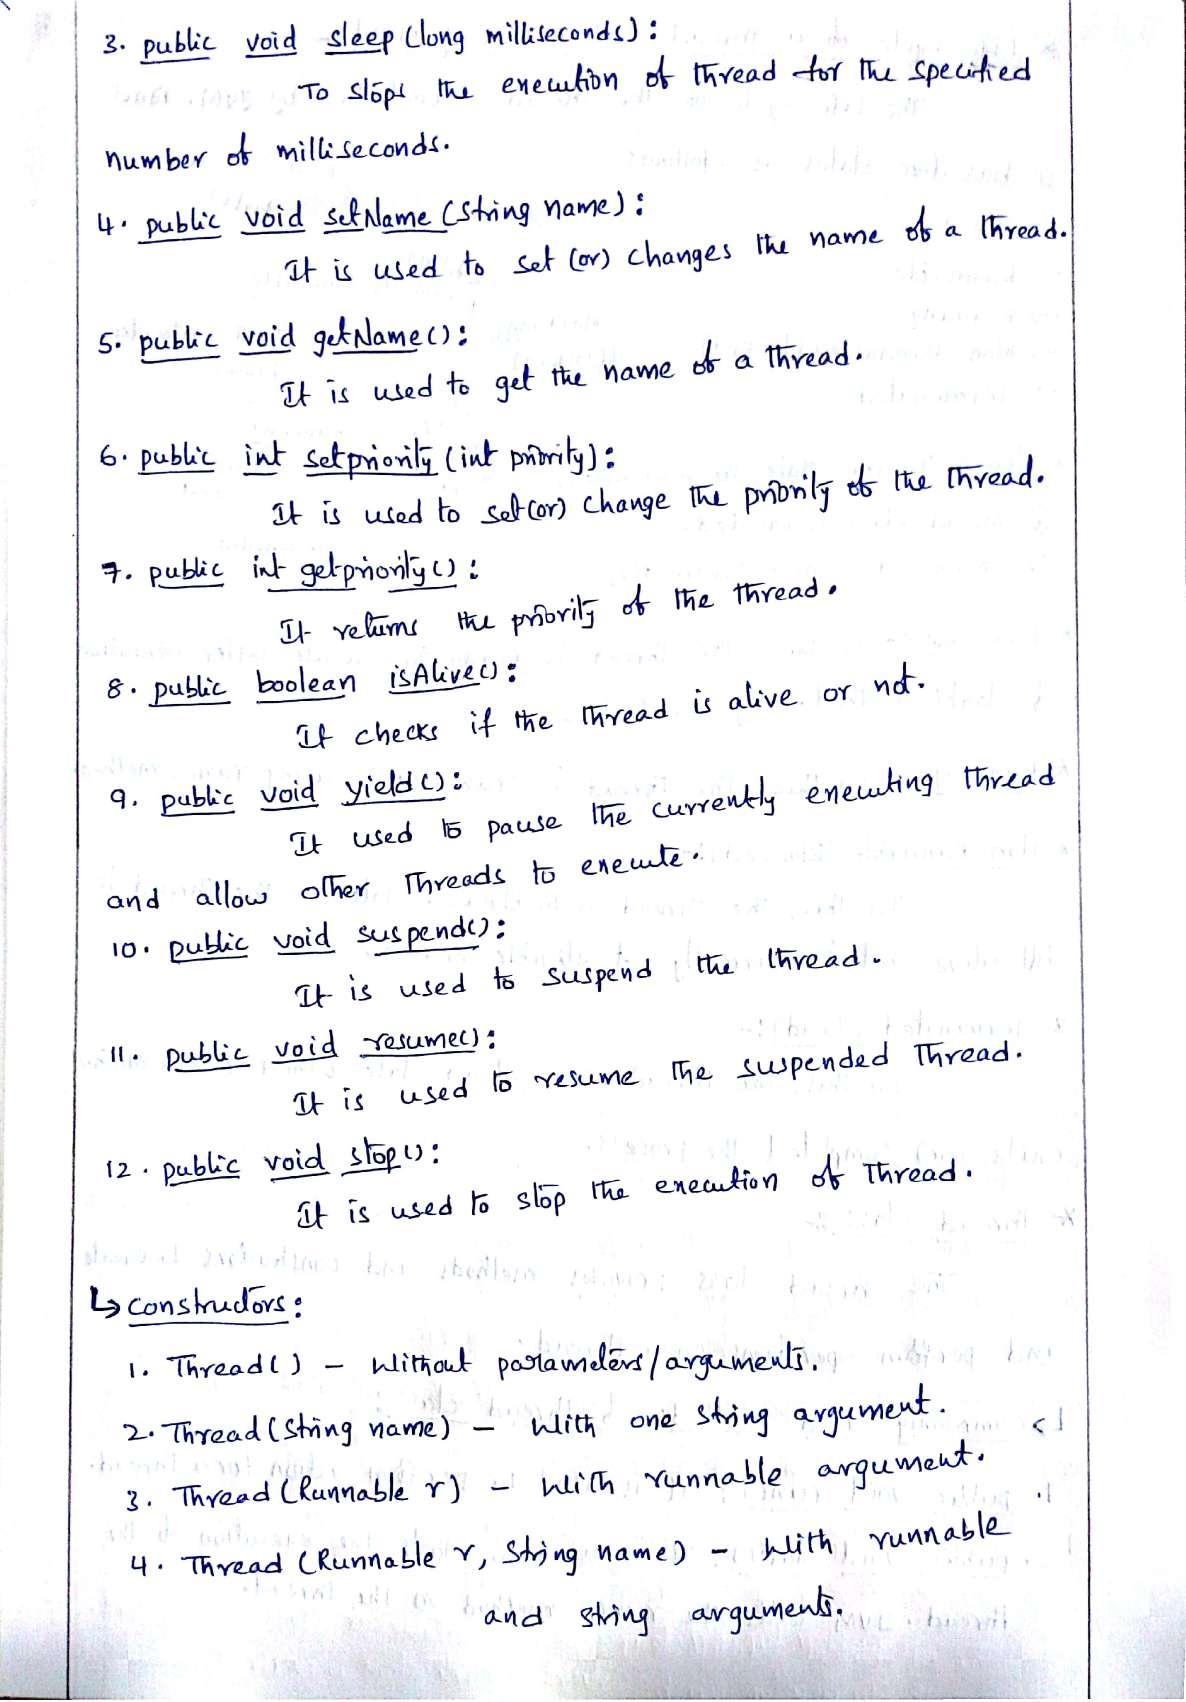 3. public void sleep (long milliseconds) :
To stops the execution of thread for the specified
number of milliseconds.
4. public void setName (String name) :
It is used to set (or) changes the name of a thread.
5. public void getName() :
It is used to get the name of a thread.
6. public int setpriority (int priority) :
It is used to set (or) change the priority of the thread.
7. public int getpriority () :
It returns the priority of the thread.
8. public boolean isAlive() :
It checks if the thread is alive or not.
9. public void yield () :
It used to pause the currently executing thread
and allow other threads to execute.
10. public void suspend() :
It is used to suspend the thread.
11. public void resume() :
It is used to resume the suspended thread.
12. public void stop () :
It is used to stop the execution of thread.
↳ constructors :
1. Thread () - Without parameters/arguments.
2. Thread (String name) - With one string argument.
3. Thread (Runnable r) - With runnable argument.
4. Thread (Runnable r, String name) - With runnable
and string arguments.